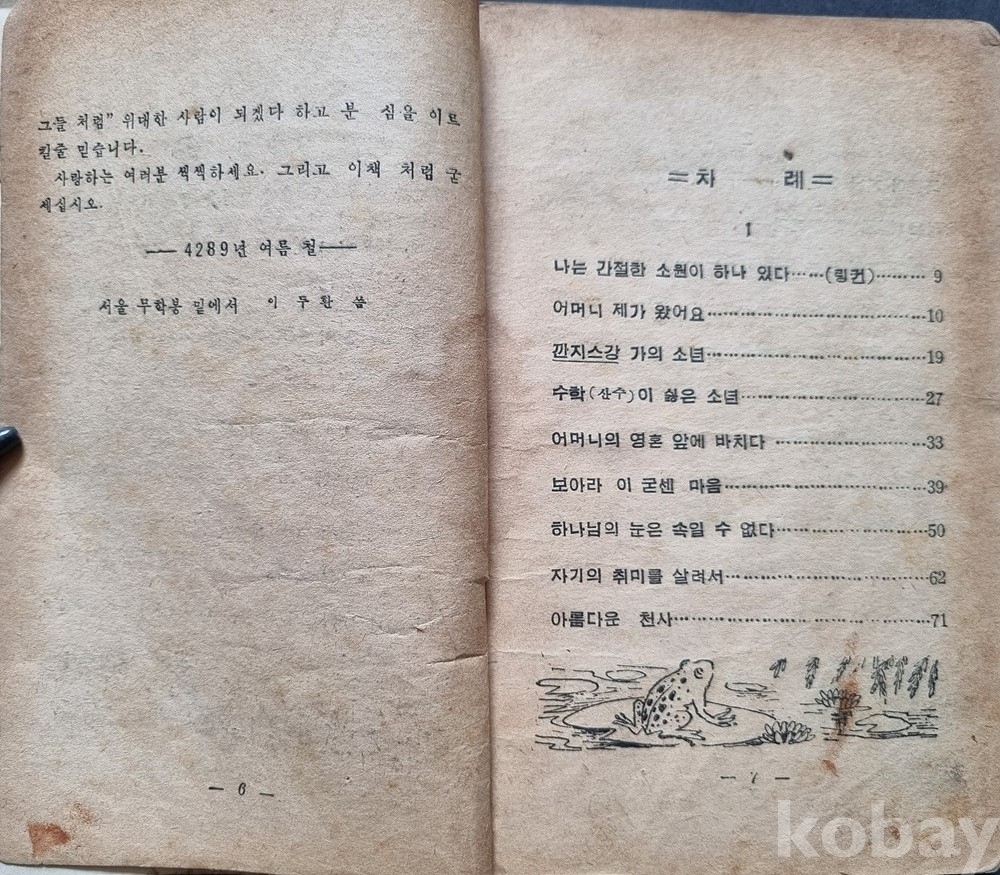 그들 처럼" 위대한 사람이 되겠다 하고 분 심을 이르
킬줄 믿습니다.
사랑하는 여러분 씩씩하세요. 그리고 이책 처럼 굳
세십시오.
── 4289년 여름 철 ──
서울 무학봉 밑에서 이 두 환 씀
— 6 —
=차 례=
1
나는 간절한 소원이 하나 있다……(링컨)……… 9
어머니 제가 왔어요………………………………10
깐지스강 가의 소년………………………………19
수학(산수)이 싫은 소년…………………………27
어머니의 영혼 앞에 바치다 ……………………33
보아라 이 굳센 마음……………………………39
하나님의 눈은 속일 수 없다……………………50
자기의 취미를 살려서……………………………62
아름다운 천사……………………………………71
— 7 —
kobay